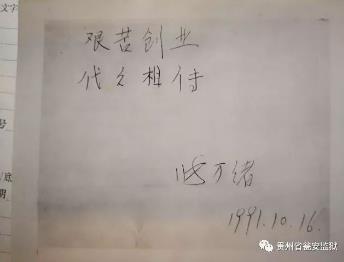 文字
号
底
艰苦创业
代代相传
万绪
1991.10.16.
贵州省瓮安监狱